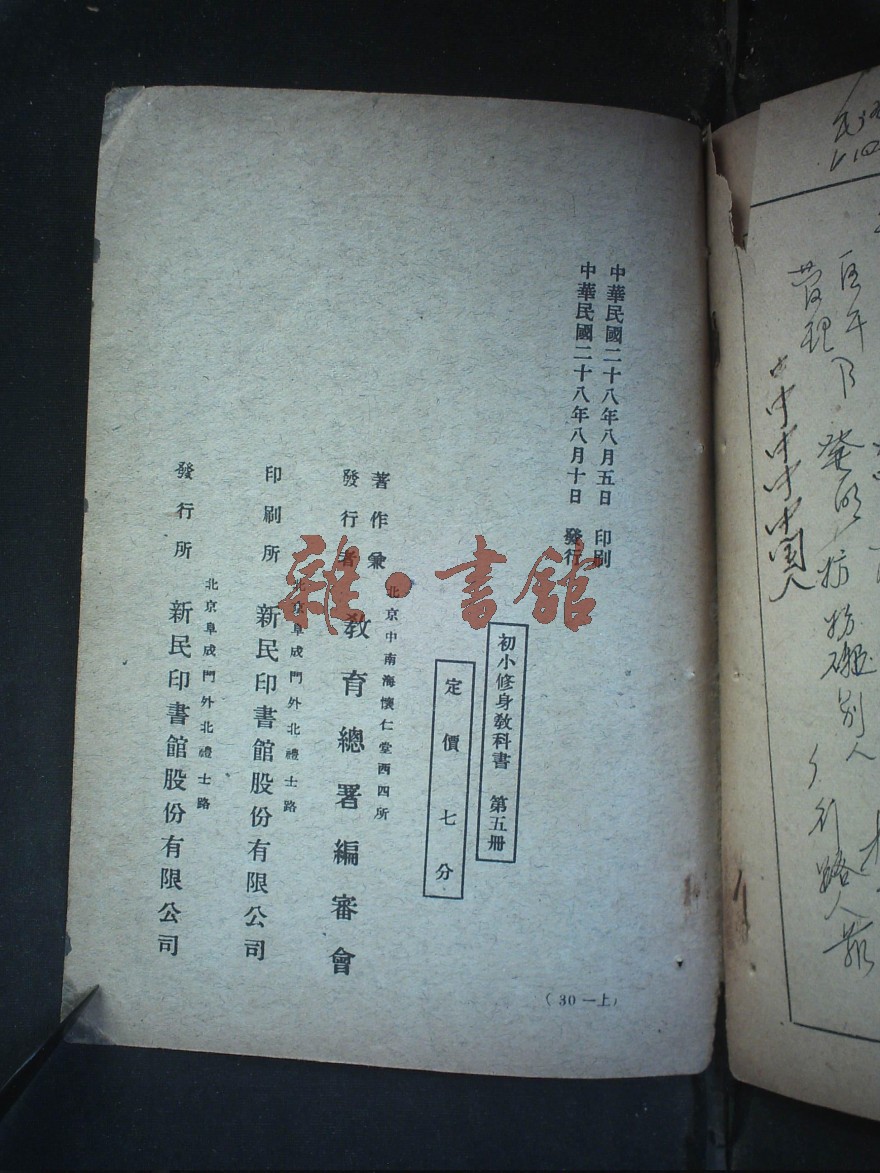 中華民國二十八年八月五日 印刷
中華民國二十八年八月十日 發行
初小修身教科書 第五冊
定價七分
著作兼
發行者
北京中南海懷仁堂西四所
教育總署編審會
印刷所
北京阜成門外北禮士路
新民印書館股份有限公司
發行所
北京阜成門外北禮士路
新民印書館股份有限公司
(30—上)
雜·書館
管理
中中中中中国人